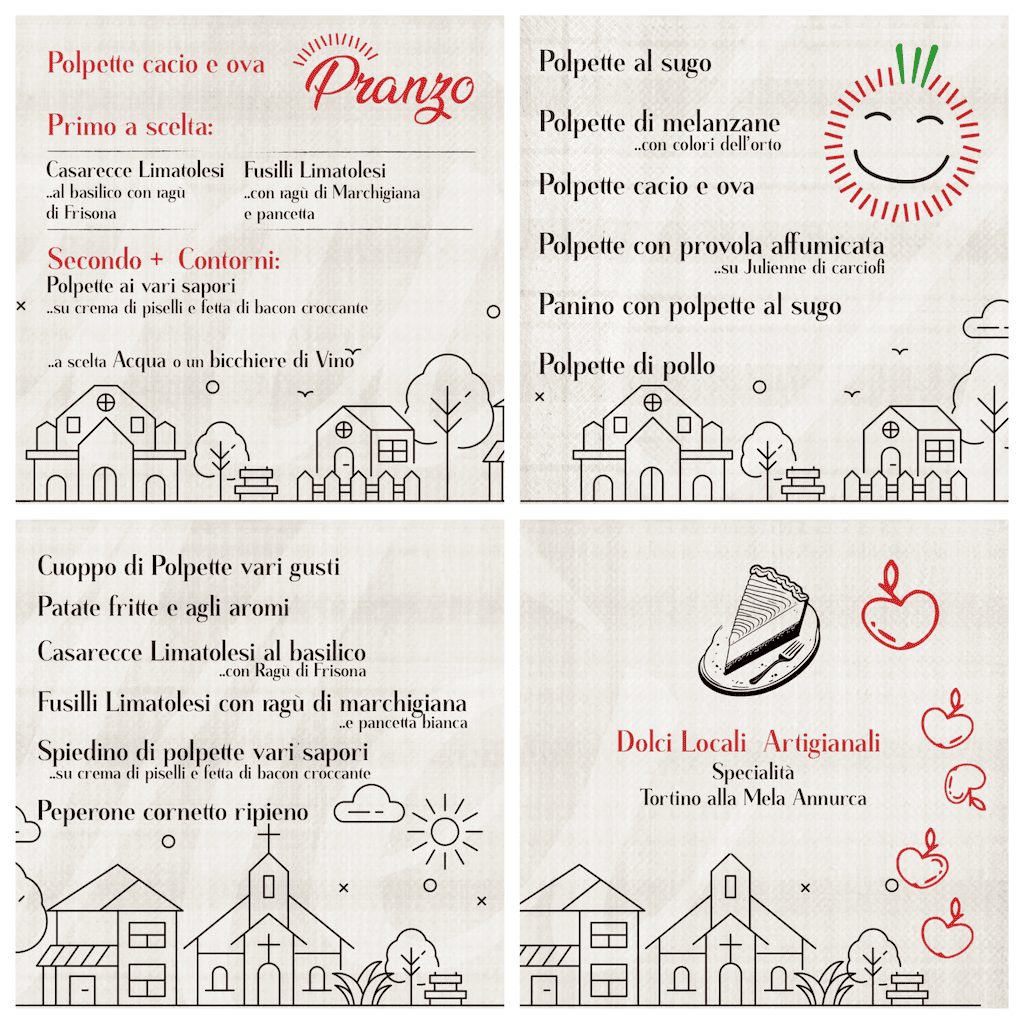 Polpette cacio e ova
Pranzo
Primo a scelta:
Casarecce Limatolesi
..al basilico con ragù
di Frisona
Fusilli Limatolesi
..con ragù di Marchigiana
e pancetta
Secondo + Contorni:
Polpette ai vari sapori
..su crema di piselli e fetta di bacon croccante
..a scelta Acqua o un bicchiere di Vino
Polpette al sugo
Polpette di melanzane
..con colori dell'orto
Polpette cacio e ova
Polpette con provola affumicata
..su Julienne di carciofi
Panino con polpette al sugo
Polpette di pollo
Cuoppo di Polpette vari gusti
Patate fritte e agli aromi
Casarecce Limatolesi al basilico
..con Ragù di Frisona
Fusilli Limatolesi con ragù di marchigiana
..e pancetta bianca
Spiedino di polpette vari sapori
..su crema di piselli e fetta di bacon croccante
Peperone cornetto ripieno
Dolci Locali Artigianali
Specialità
Tortino alla Mela Annurca